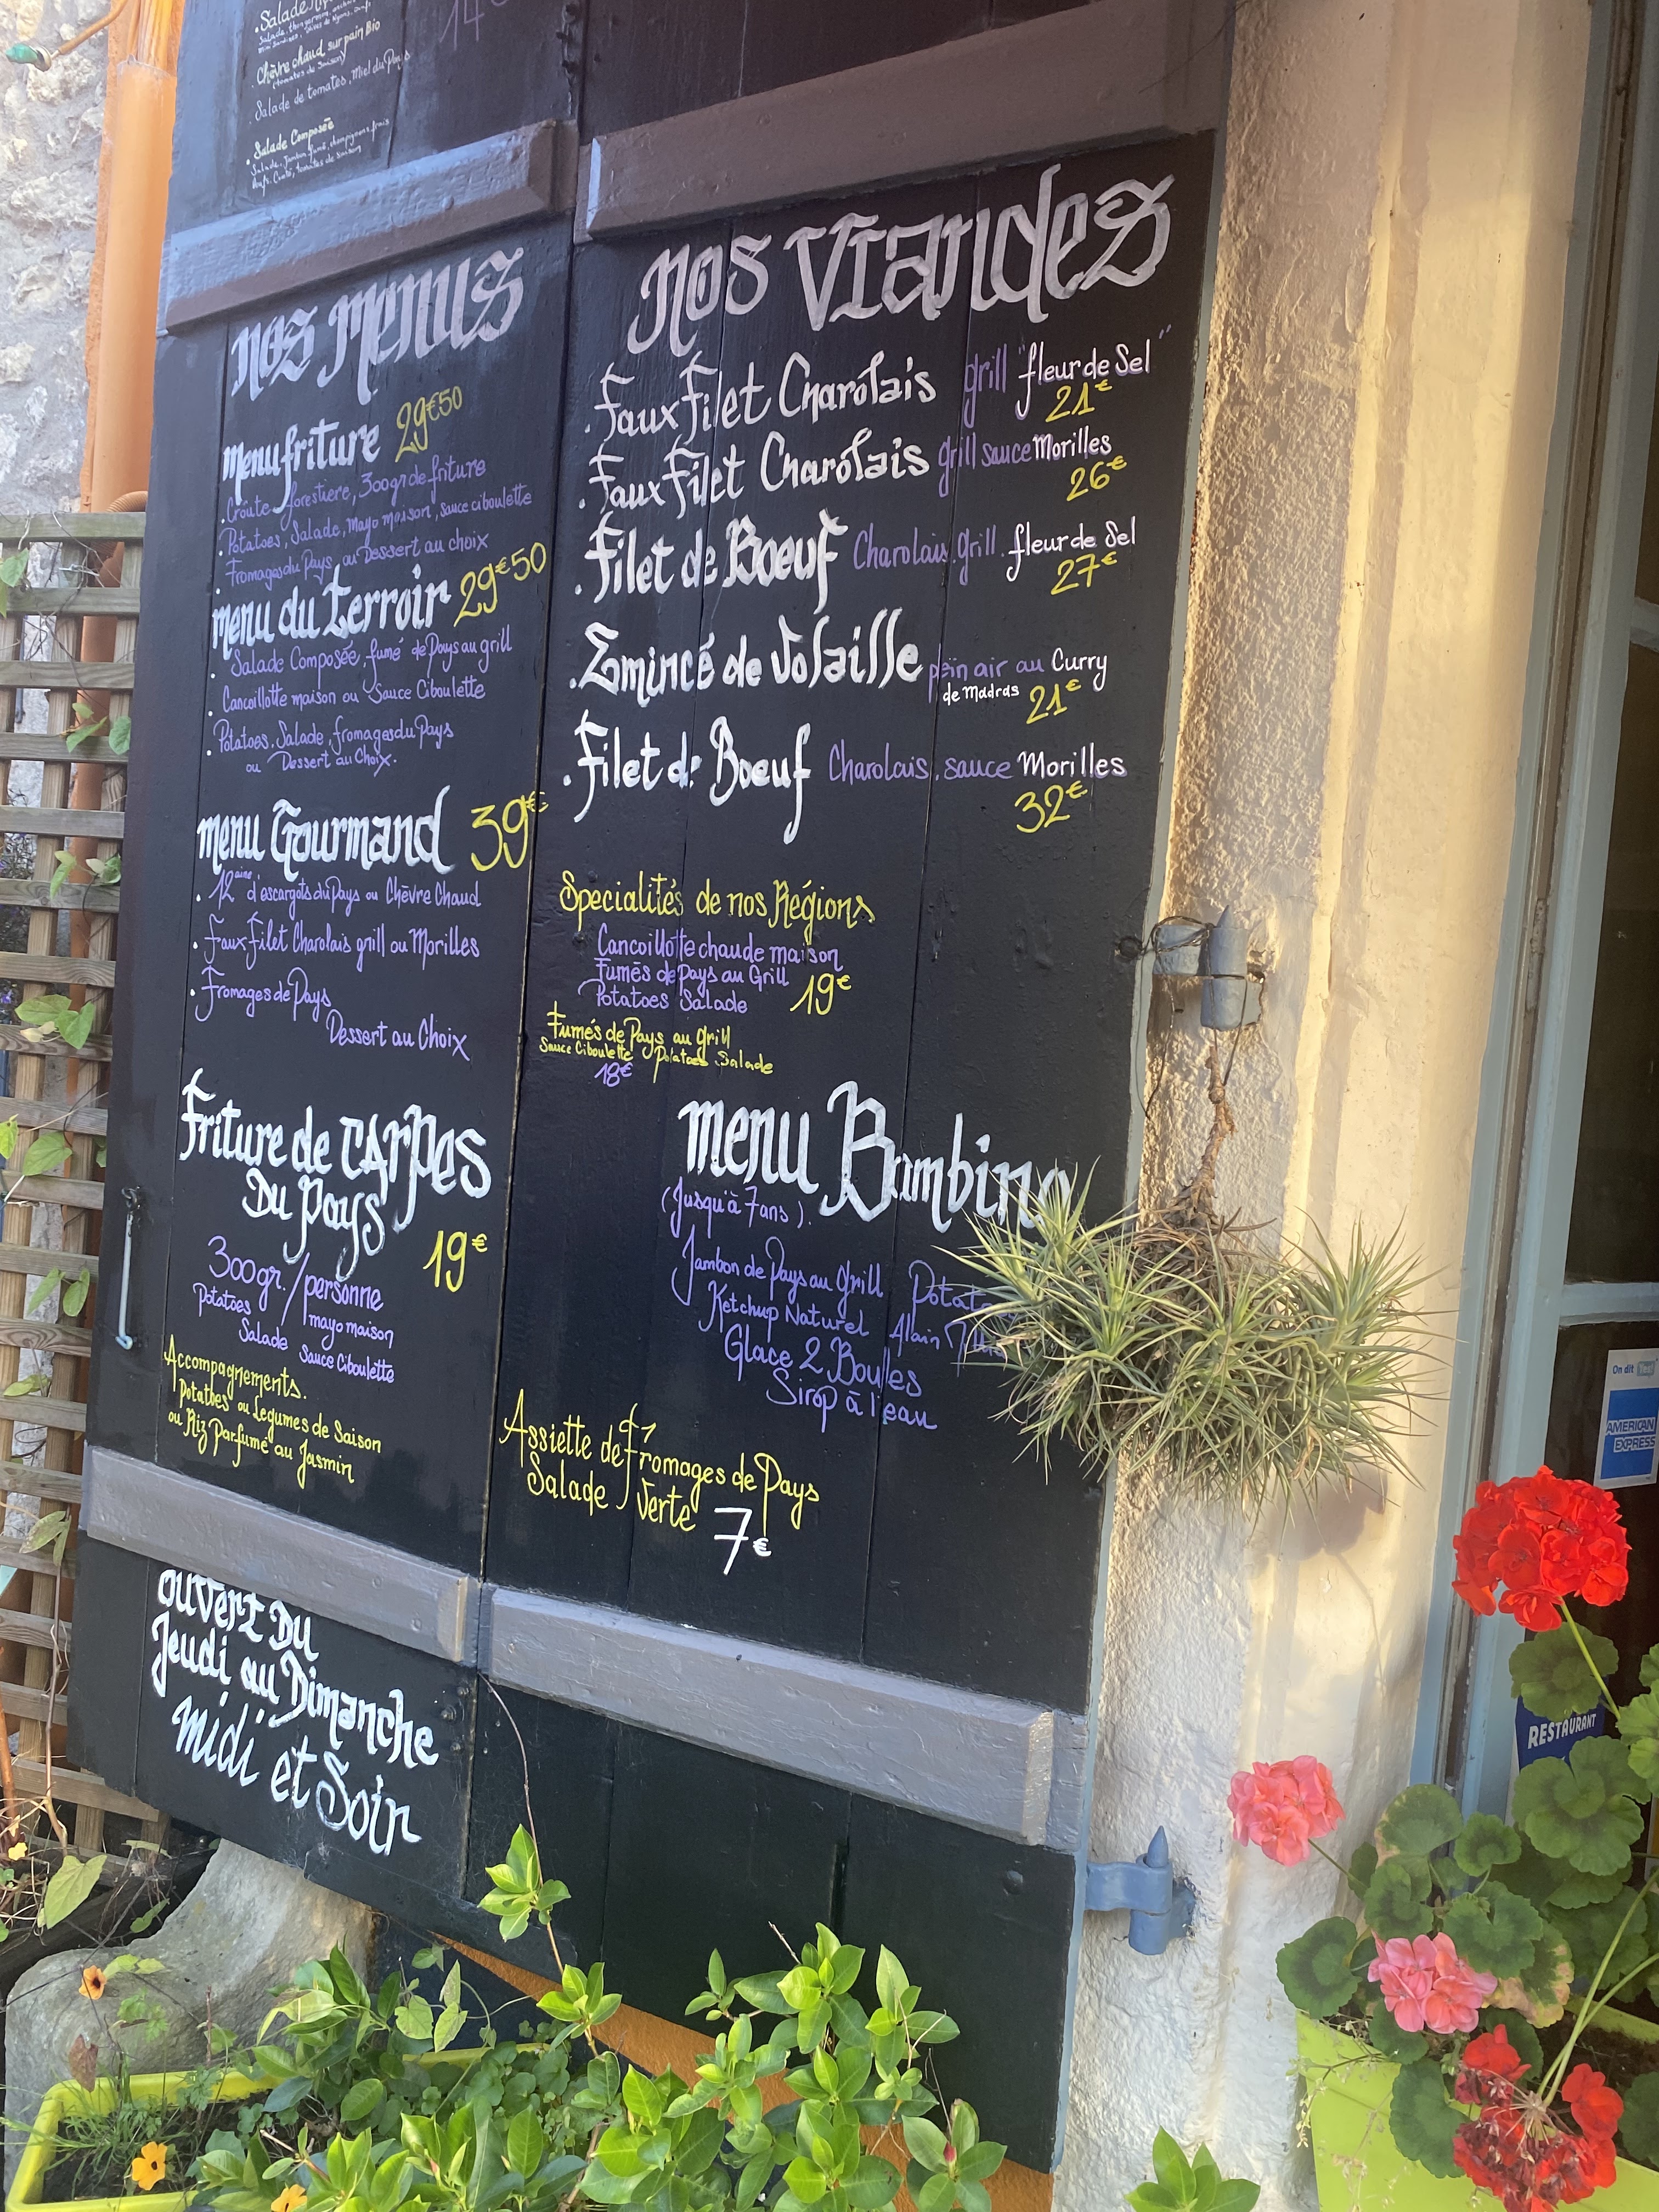 14€
Chèvre chaud sur pain Bio
(tomates de saison)
Salade de tomates, Miel du Pays
Salade Composée
nos Menus
menu friture 29€50
Croute forestiere, 300gr de friture
Potatoes, Salade, Mayo maison, sauce ciboulette
Fromages du Pays ou Dessert au choix
menu du terroir 29€50
Salade Composée, fumé de Pays au grill
Cancoillotte maison ou Sauce Ciboulette
Potatoes. Salade, fromages du Pays
ou Dessert au Choix.
menu Gourmand 39€
12aine d'escargots du Pays ou Chèvre Chaud
Faux Filet Charolais grill ou Morilles
Fromages de Pays
Dessert au Choix
Friture de CArpes
Du pays
19€
300gr./personne
Potatoes mayo maison
Salade Sauce Ciboulette
Accompagnements.
Potatoes ou Legumes de Saison
ou Riz Parfumé au Jasmin
ouvert Du
Jeudi au Dimanche
midi et Soir
nos Viandes
Faux Filet Charolais grill "fleur de Sel"
21€
Faux Filet Charolais grill sauce Morilles
26€
Filet de Boeuf Charolais grill fleur de Sel
27€
Emincé de Volaille plein air au Curry
de Madras 21€
Filet de Boeuf Charolais, sauce Morilles
32€
Specialités de nos Régions
Cancoillotte chaude maison
Fumés de pays au Grill
Potatoes Salade 19€
Fumés de Pays au Grill
Sauce Ciboulette Potatoes Salade
18€
menu Bambino
(Jusqu'à 7 ans).
Jambon de Pays au Grill
Ketchup Naturel Alain
Glace 2 Boules
Sirop à l'eau
Assiette de fromages de Pays
Salade Verte
7€
On dit
AMERICAN
EXPRESS
RESTAURANT